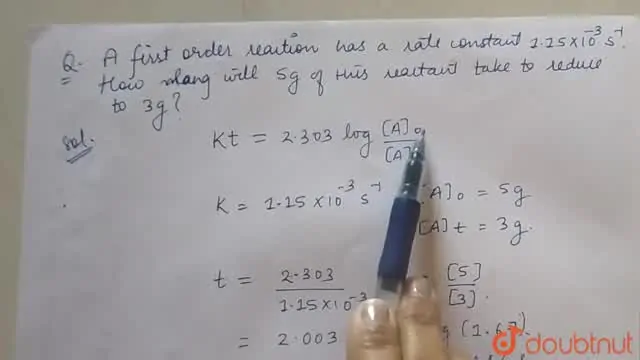 Q. A first order reaction has a rate constant 1.15×10⁻³ s⁻¹.
How long will 5g of this reactant take to reduce
to 3g?
Sol.
Kt = 2.303 log [A]₀ / [A]
K = 1.15 ×10⁻³ s⁻¹ [A]₀ = 5g
[A]t = 3g.
t = 2.303 / 1.15×10⁻³ [5] / [3].
= 2.003 (1.67)
doubtnut